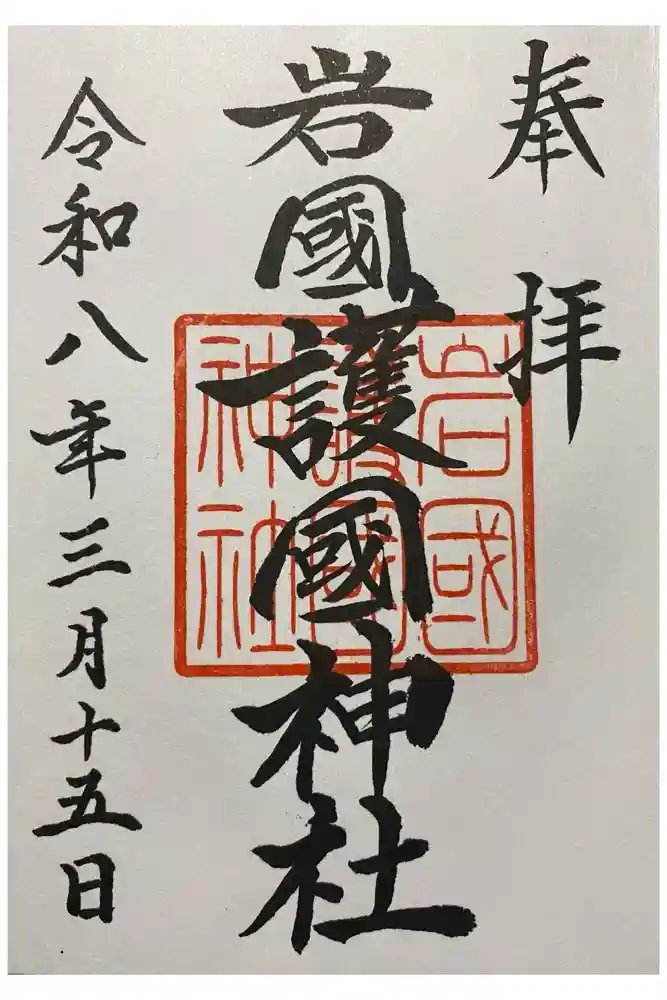 奉拝
岩國護國神社
岩國
護國
神社
令和八年三月十五日